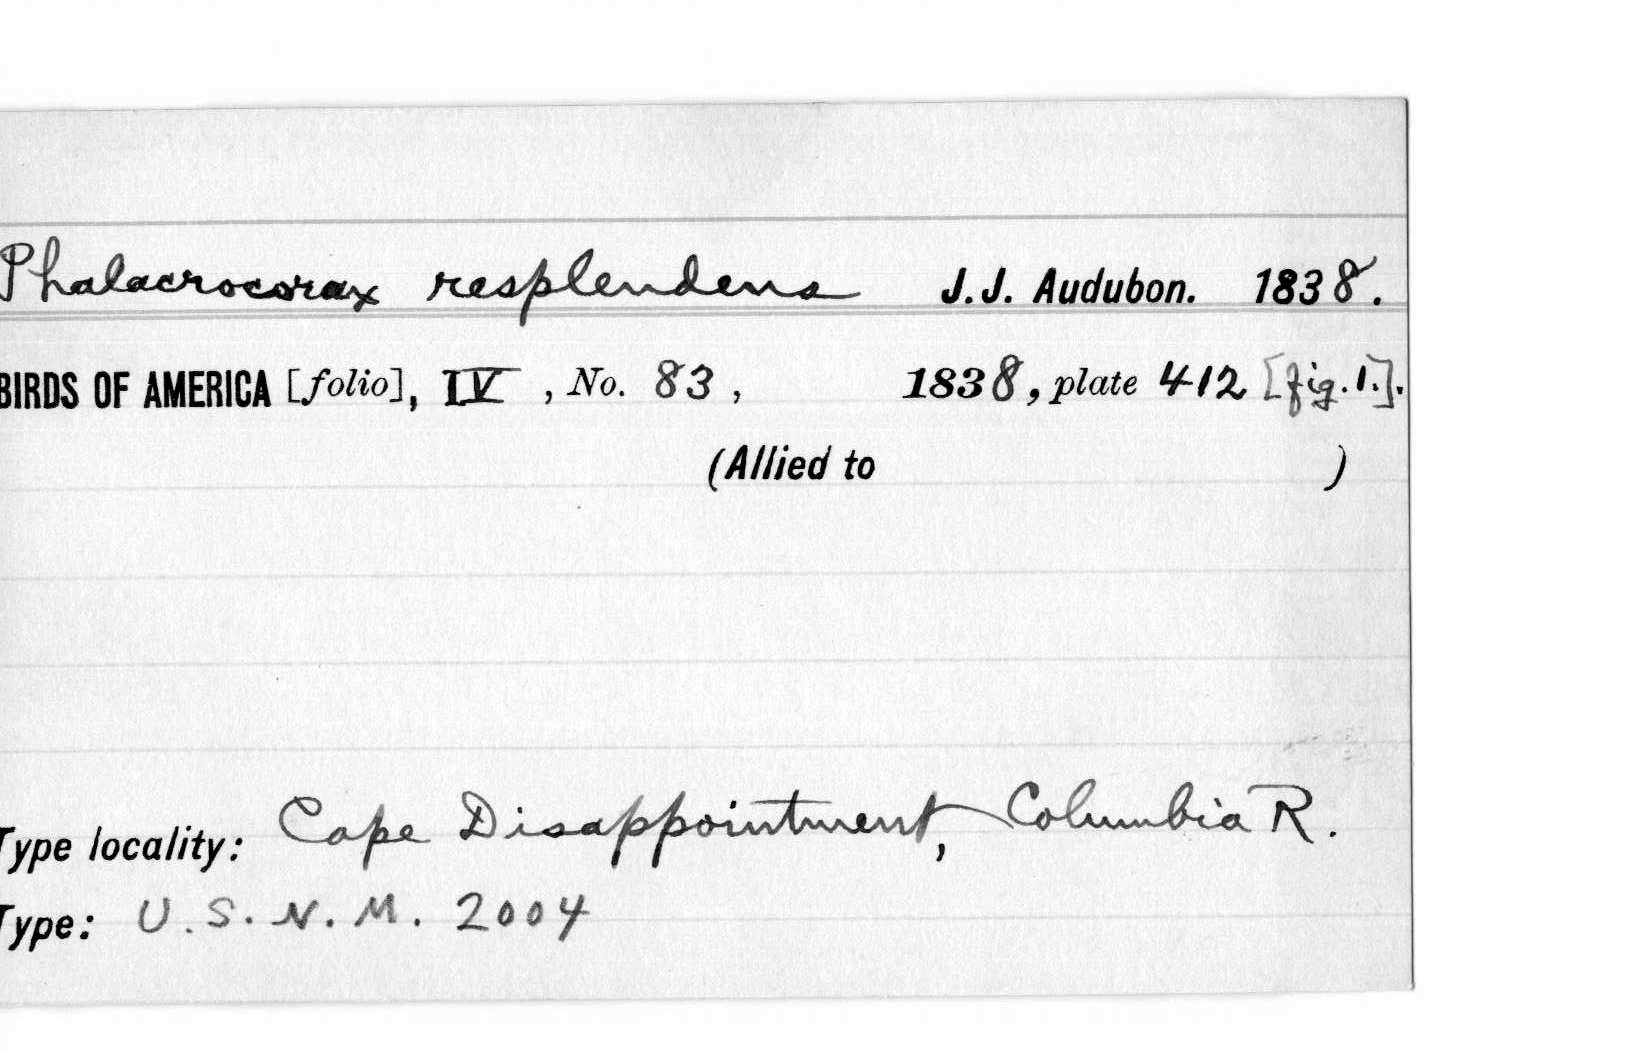 Phalacrocorax resplendens J.J. Audubon. 1838.
BIRDS OF AMERICA [folio], IV, No. 83, 1838, plate 412 [fig. 1.].
(Allied to )
Type locality: Cape Disappointment, Columbia R.
Type: U.S.N.M. 2004